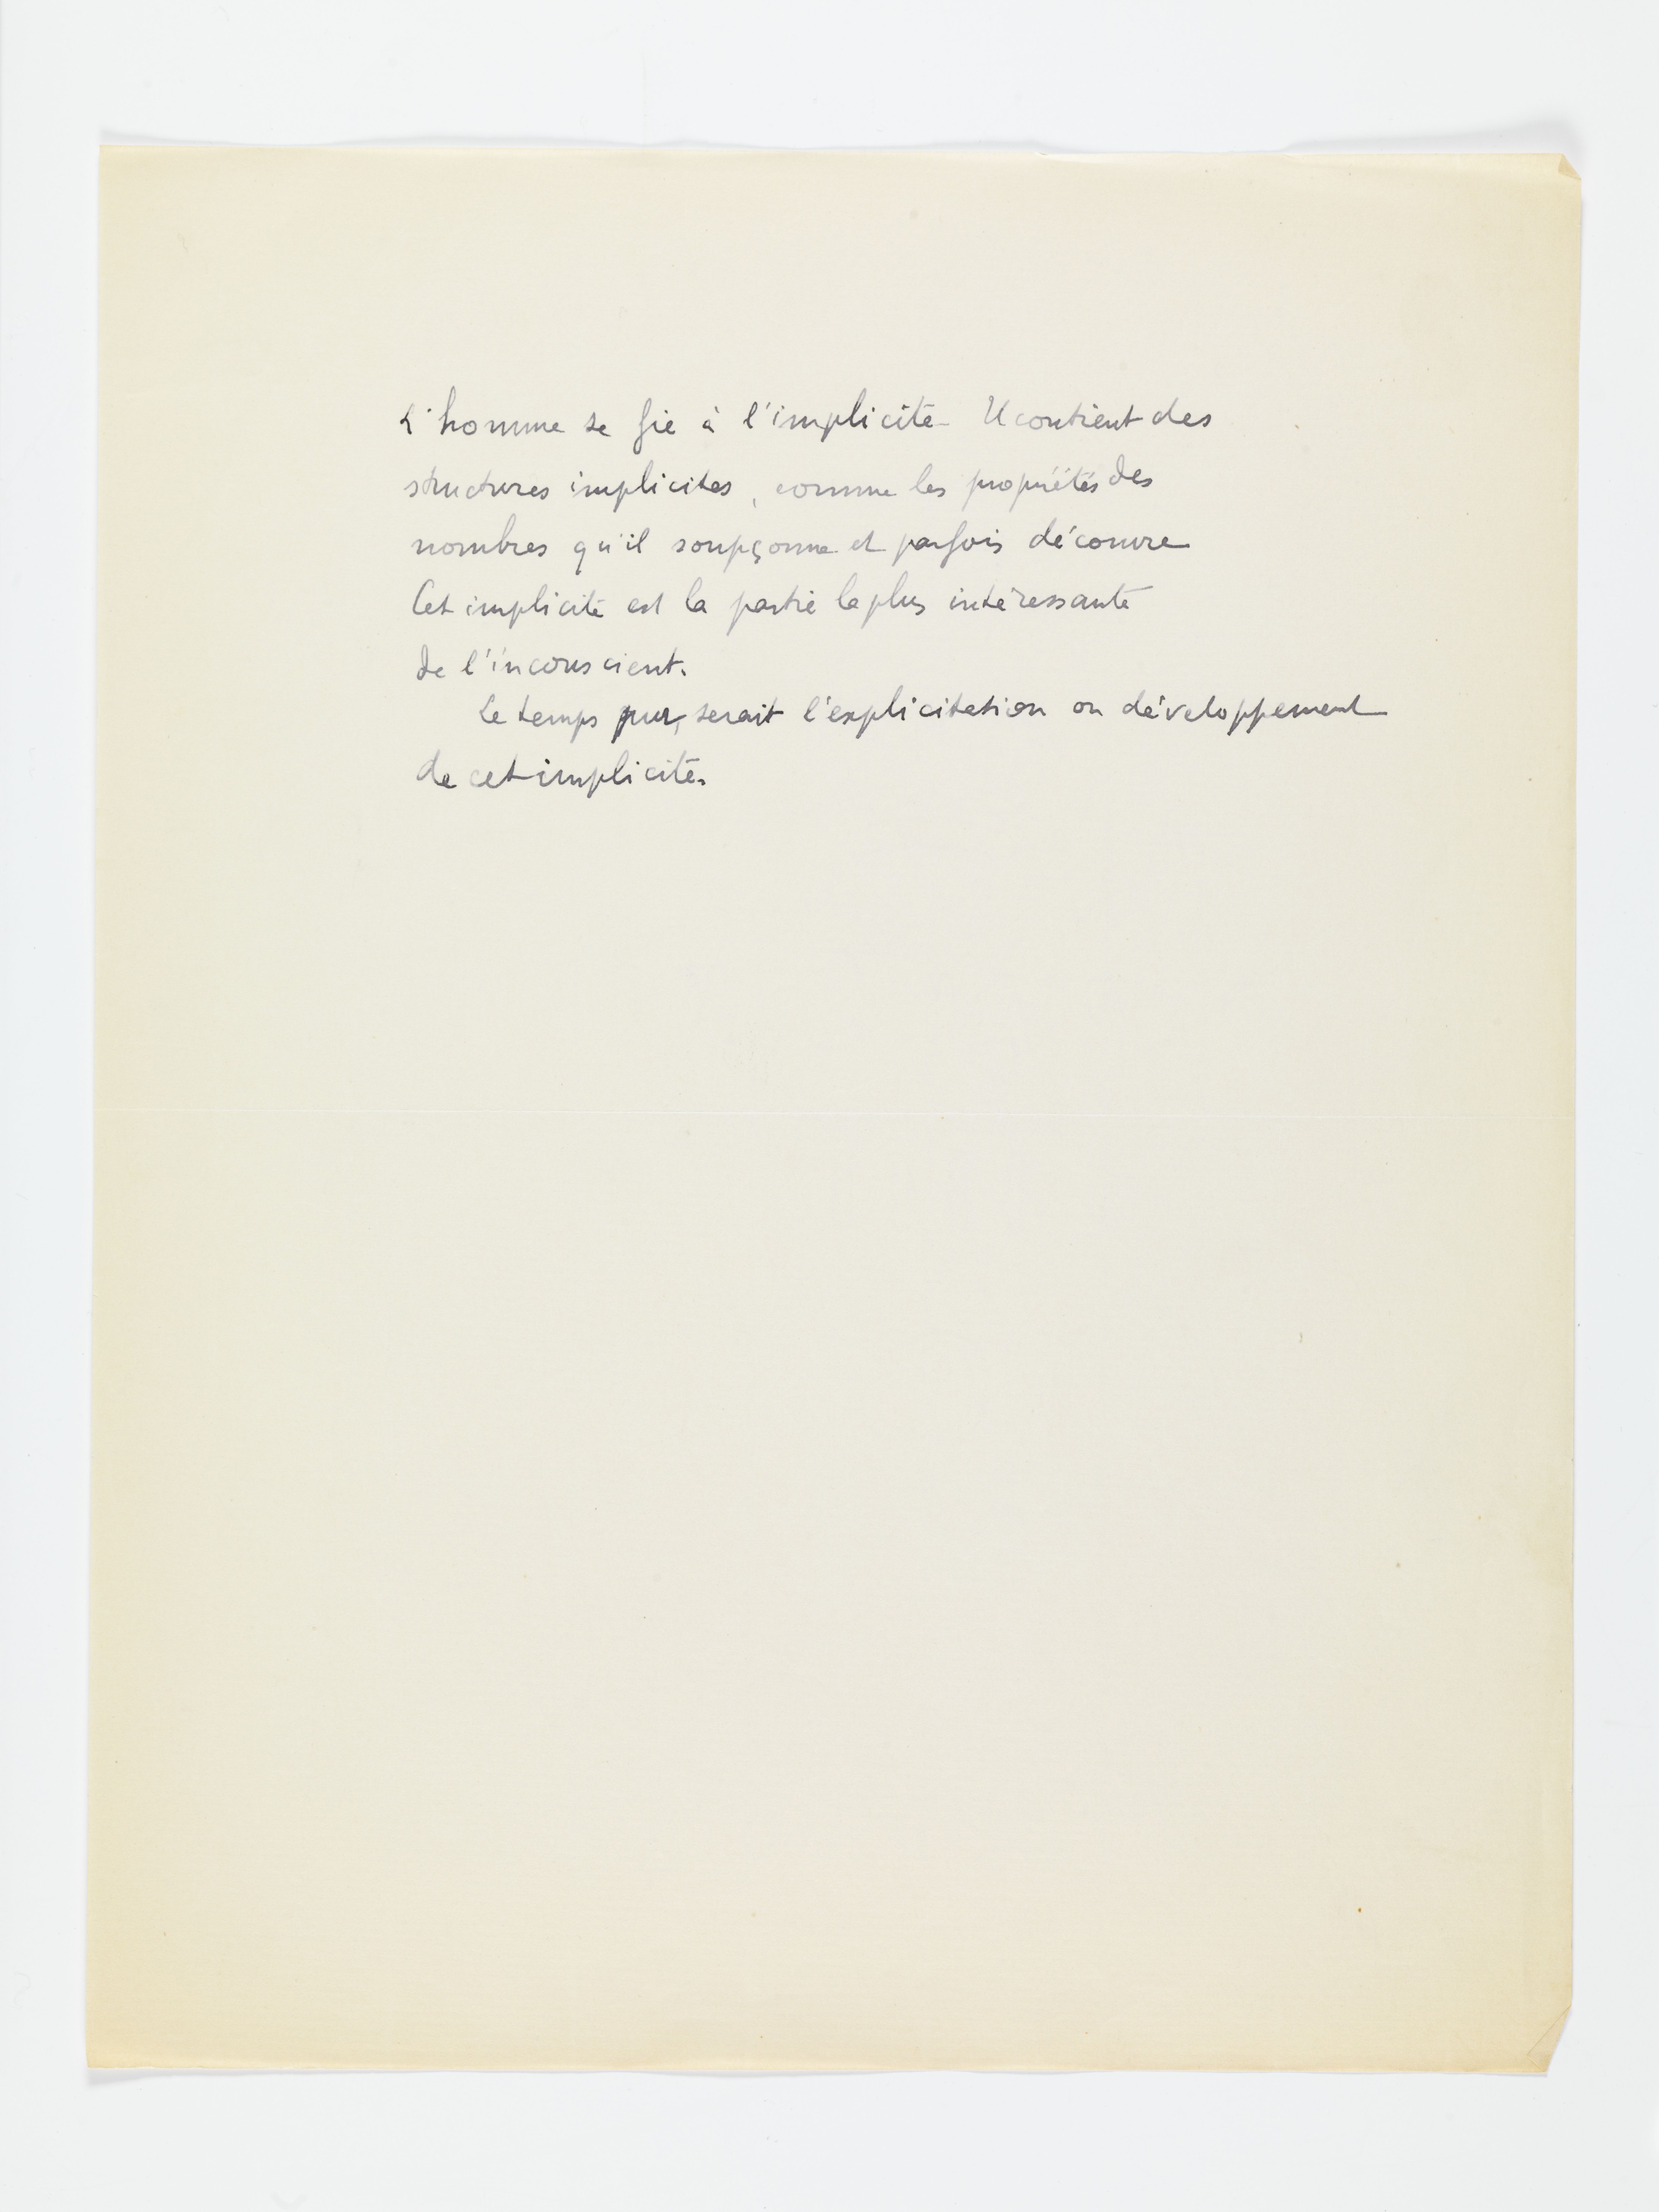 L'homme se fie à l'implicité - Il contient des
structures implicites, comme les propriétés des
nombres qu'il soupçonne et parfois découvre
Cet implicité est la partie la plus intéressante
de l'inconscient.
Le temps pur, serait l'explicitation ou développement
de cet implicité.